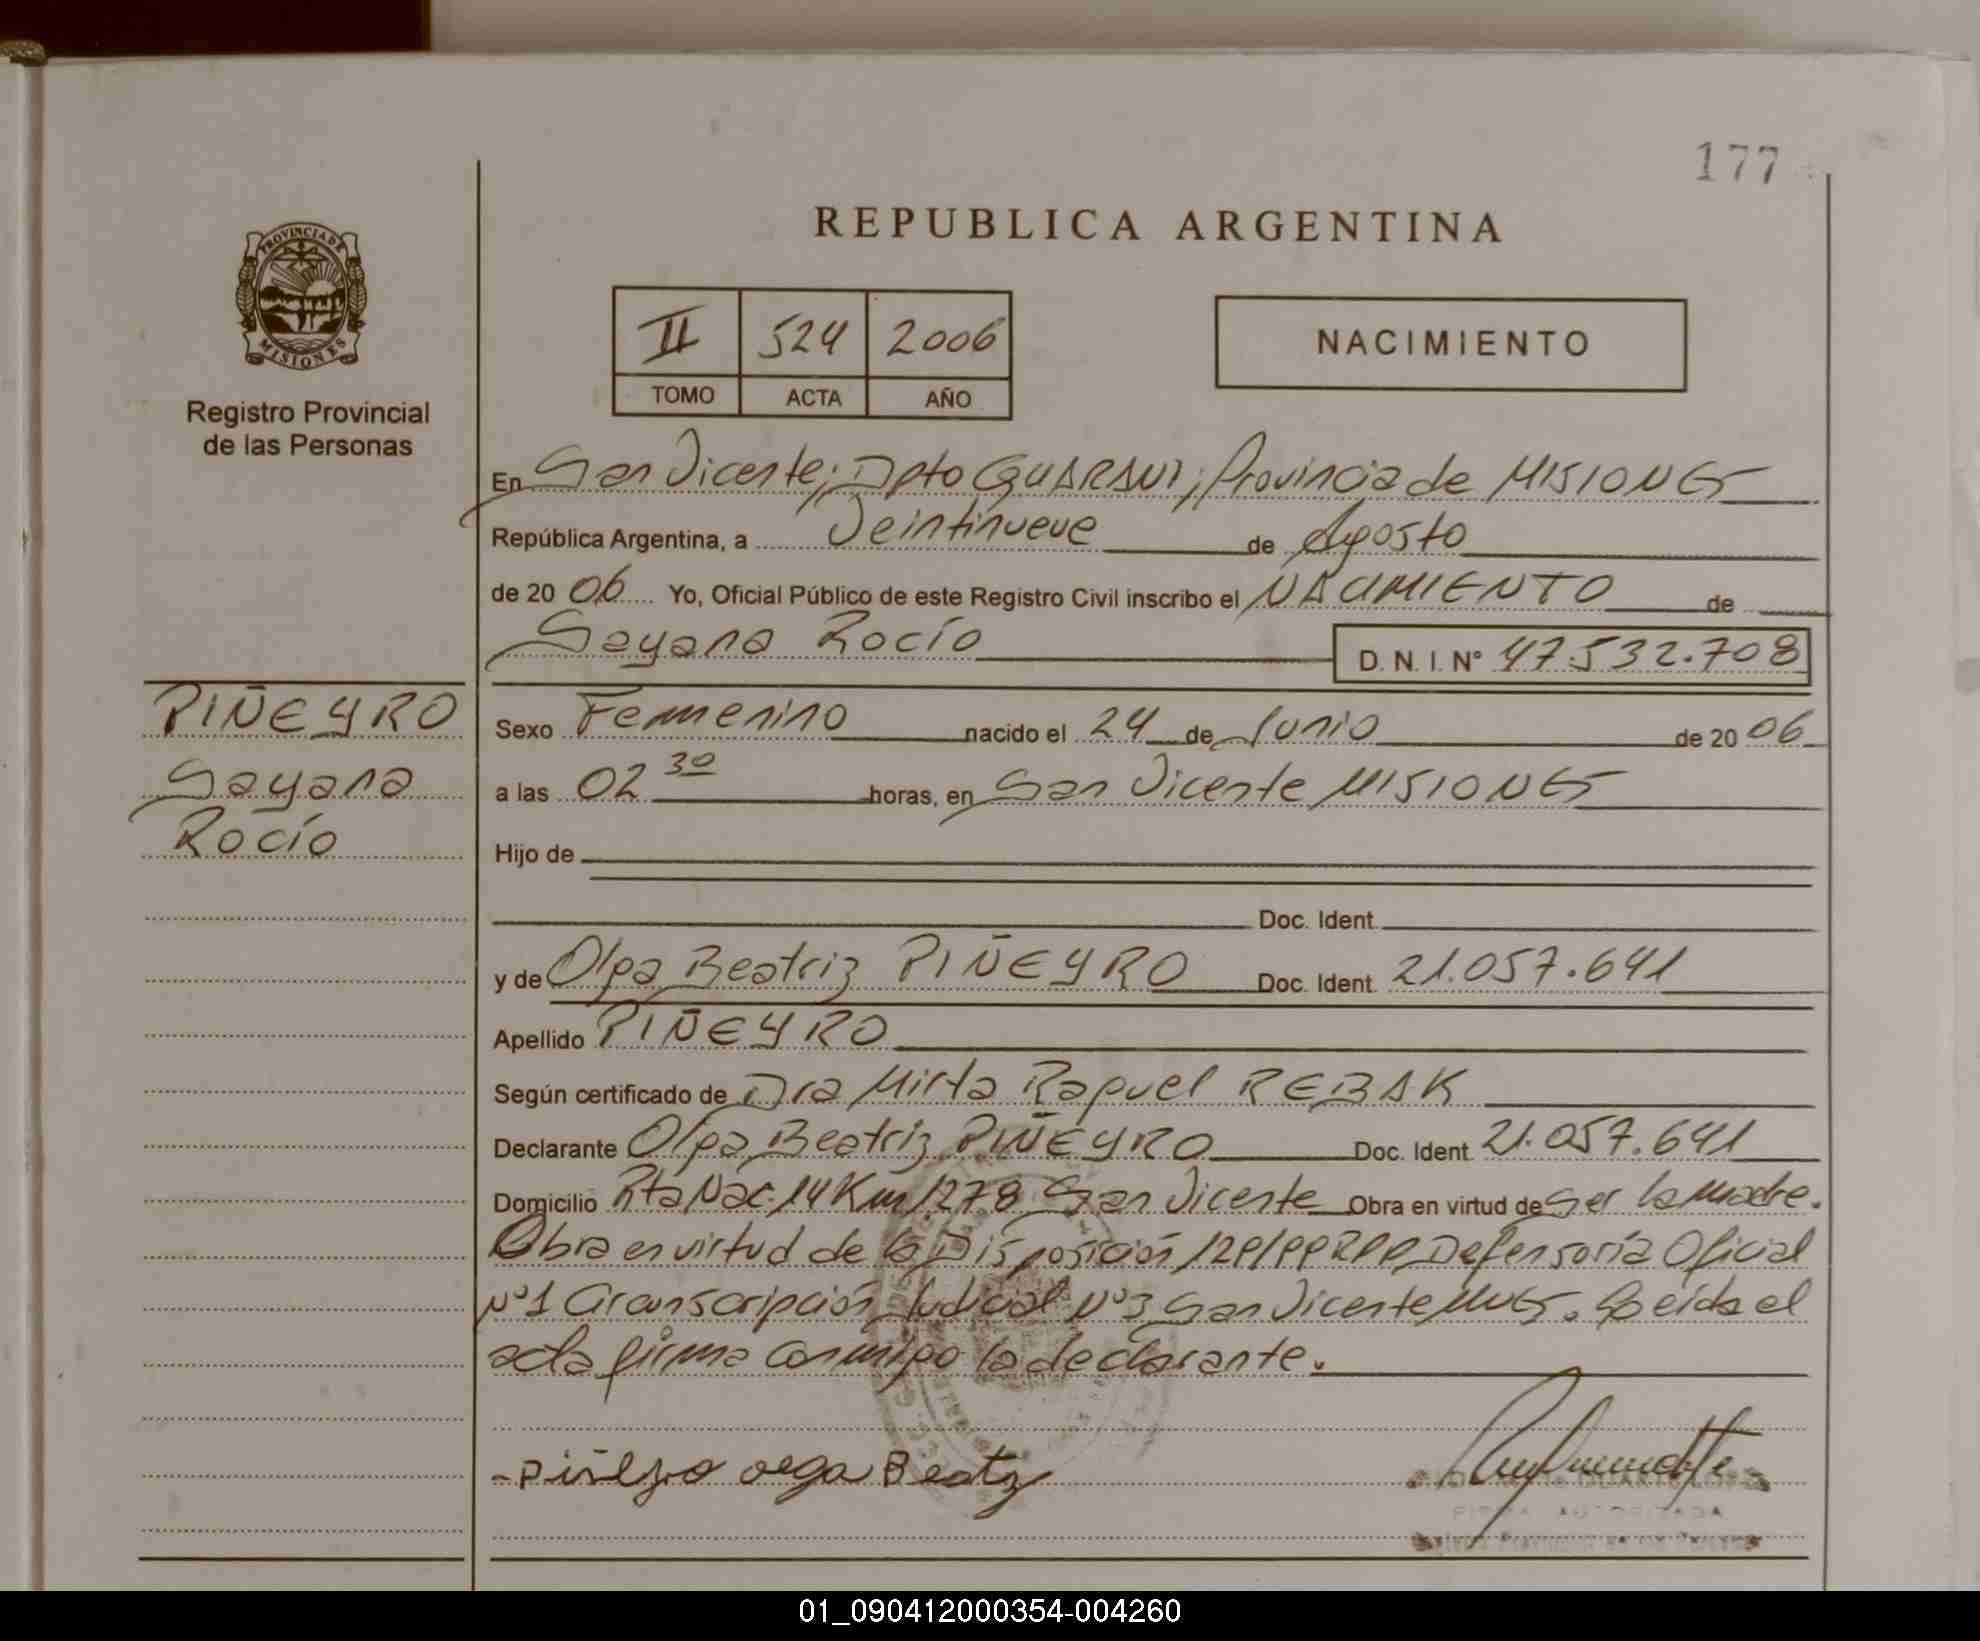 177
REPUBLICA ARGENTINA
PROVINCIA DE
MISIONES
Registro Provincial
de las Personas
II 524 2006
TOMO ACTA AÑO
NACIMIENTO
En San Vicente; Dpto GUARANI; Provincia de MISIONES
República Argentina, a Veintinueve de Agosto
de 20 06 Yo, Oficial Público de este Registro Civil inscribo el NACIMIENTO de
Sayana Rocío D. N. I. N° 47.532.708
PIÑEYRO
Sayana
Rocío
Sexo Femenino nacido el 24 de Junio de 20 06
a las 02 30 horas, en San Vicente MISIONES
Hijo de
Doc. Ident.
y de Olga Beatriz PIÑEYRO Doc. Ident. 21.057.641
Apellido PIÑEYRO
Según certificado de Dra Mirta Raquel REBAK
Declarante Olga Beatriz PIÑEYRO Doc. Ident. 21.057.641
Domicilio Rta Nac. 14 Km 1278 San Vicente Obra en virtud de Ser la madre.
Obra en virtud de la Disposición Defensoría Oficial
N°1 Circunscripción Judicial N°3 San Vicente Mnes. Leída el
acta firma conmigo la declarante.
-piñeyro olga Beatriz
FIRMA AUTORIZADA
01_090412000354-004260